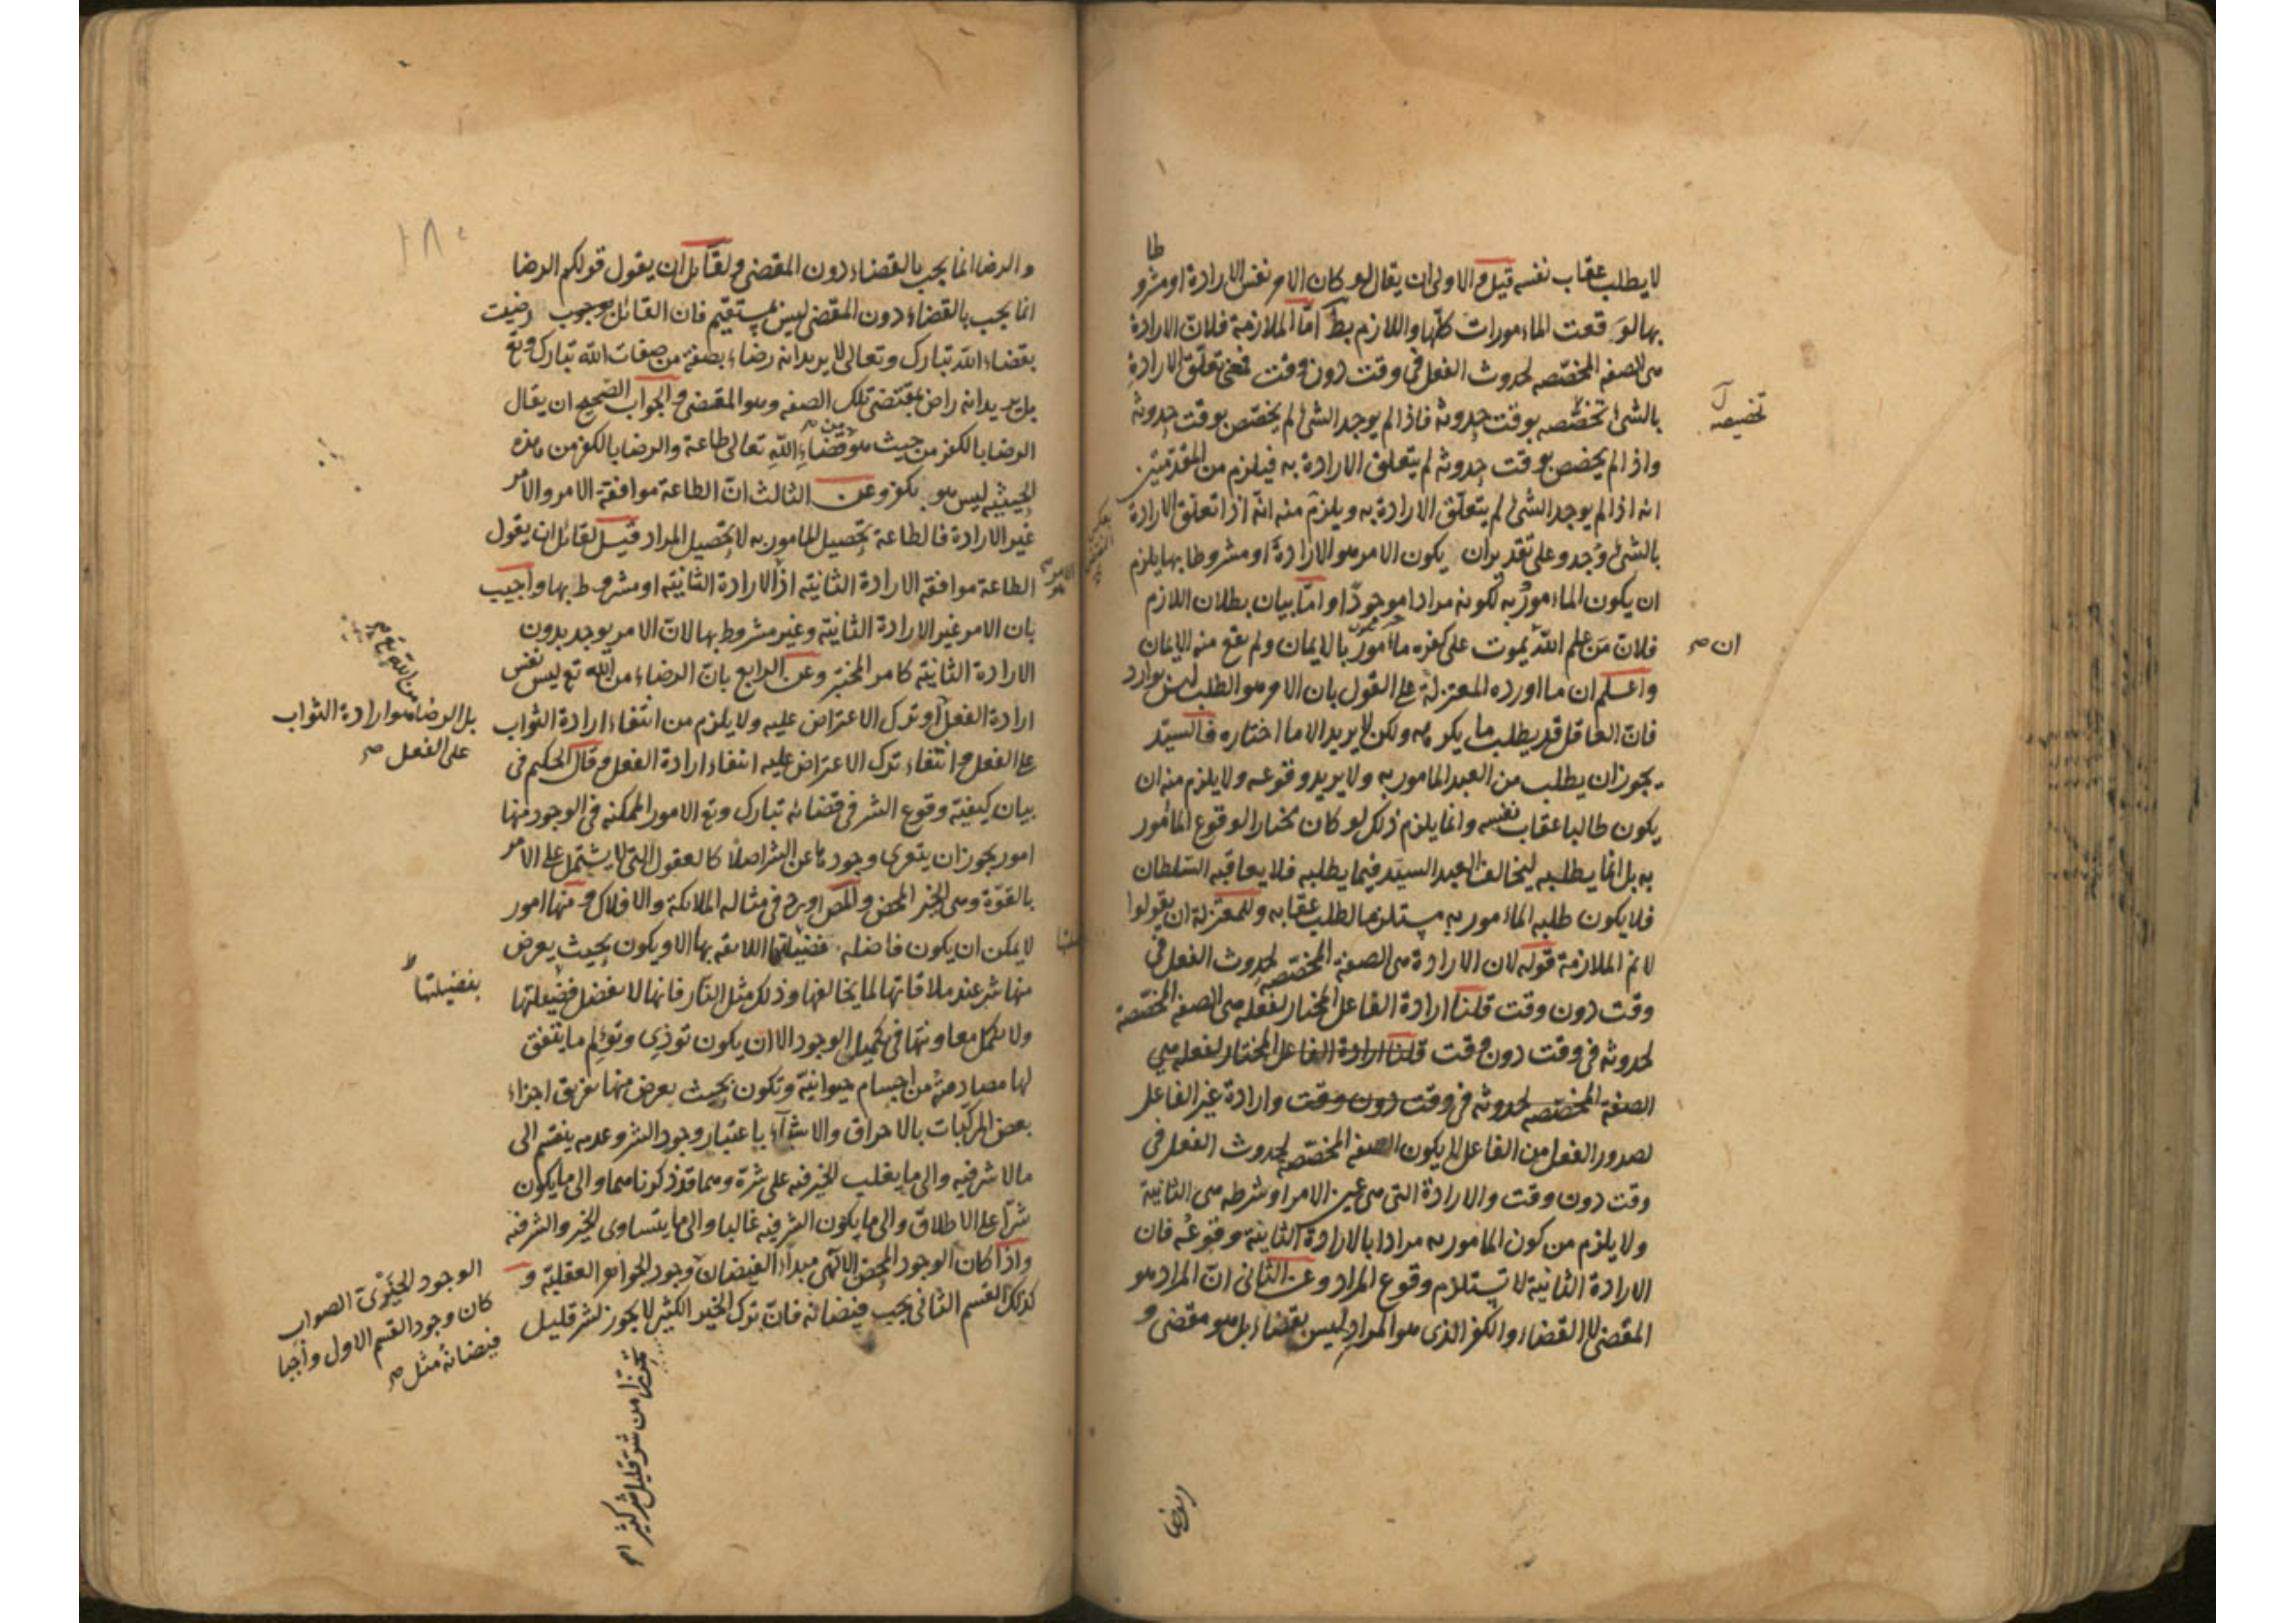 لا يطلب عقاب نفسه قيل والاولى ان يقال لو كان الامر نفس الارادة او مشروطا
بها لوقعت الماءمورات كلّها واللازم بط امّا الملازمة فلانّ الارادة
هى الصفه المخصّصه لحدوث الفعل فى وقت دون وقت فمعنى تعلّق الارادة
بالشئ تخصّصه بوقت حدوثه فاذا لم يوجد الشئ لم يخصّص بوقت حدوثه
تخصيصه
واذا لم يخصص بوقت حدوثه لم يتعلق الارادة به فيلزم من المقدمتين
انه اذا لم يوجد الشئ لم يتعلّق الارادة به ويلزم منه انّه اذا تعلّق الارادة
بالشئ وجد وعلى تقدير ان يكون الامر هو الارادة او مشروطا بها يلزم
ان يكون الماءمور به لكونه مرادا موجودًا وامّا بيان بطلان اللازم
فلانّ مَن علم اللّه يموت على كفره ماءمور بالايمان ولم يقع منه الايمان
ان صح
واعلم ان ما اورده المعتزلة على القول بان الامر هو الطلب ليس بوارد
فانّ العاقل قد يطلب ما يكرهه ولكن لا يريد الا ما اختاره فالسيّد
يجوز ان يطلب من العبد المامور به ولا يريد وقوعه ولا يلزم منه ان
يكون طالبا عقاب نفسه وانما يلزم ذلك لو كان مختارا لوقوع المأمور
به بل انما يطلبه ليخالف العبد السيّد فيما يطلبه فلا يعاقبه السّلطان
فلا يكون طلبه الماءمور به مستلزما لطلب عقابه وللمعتزلة ان يقولوا
لا نم الملازمة قوله لان الارادة هى الصفة المخصّصه لحدوث الفعل فى
وقت دون وقت قلنا ارادة الفاعل المختار لفعله هى الصفة المخصّصة
لحدوثه فى وقت دون وقت قلنا ارادة الفاعل المختار لفعله هى
الصفة المخصّصه لحدوثه فى وقت دون وقت وارادة غير الفاعل
لصدور الفعل من الفاعل لا يكون الصفة المخصّصه لحدوث الفعل فى
وقت دون وقت والارادة التى هى عين الامر او شرطه هى الثانية
ولا يلزم من كون المامور به مرادا بالارادة الثانية وقوعه فان
الارادة الثانية لا تستلزم وقوع المراد وعن الثانى انّ المراد هو
المقضى لا القضاء والكفر الذى هو المراد ليس بقضاء بل هو مقضى و
والرضا
والرضا انما يجب بالقضاء دون المقضى ولقائل ان يقول قولكم الرضا
انما يجب بالقضاء دون المقضى ليس بمستقيم فان القائل بوجوب رضيت
بقضاء اللّه تبارك وتعالى لا يريد انه رضاء بصفة من صفات اللّه تبارك وتع
بل يريد انه راض بمقتضى تلك الصفه وهو المقضى والجواب الصّحيح ان يقال
الرضا بالكفر من حيث هو من قضاء اللّه تعالى طاعة والرضا بالكفر من هذه
الحيثيه ليس هو بكفر وعن الثالث انّ الطاعة موافقة الامر والامر
غير الارادة فالطاعة تحصيل المامور به لا تحصيل المراد قيل لقائل ان يقول
الطاعة موافقة الارادة الثانية اذ الارادة الثانية او مشروط بها واجيب
الامر
بان الامر غير الارادة الثانية وغير مشروط بها لانّ الامر يوجد بدون
الارادة الثانية كامر المختبر وعن الرابع بانّ الرضاء من اللّه تع ليس نفس
ارادة الفعل او ترك الاعتراض عليه ولا يلزم من انتفاء ارادة الثواب
من اللّه تع
بل الرضا هو ارادة الثواب
على الفعل صح
على الفعل وانتفاء ترك الاعتراض عليه انتفاء ارادة الفعل وقال الحكيم فى
بيان كيفية وقوع الشر فى قضائه تبارك وتع الامور الممكنه فى الوجود منها
امور يجوز ان يتعرى وجودها عن الشر اصلًا كالعقول التى لا يشتمل على الامر
بالقوّة وهى الخير المحض والمص اورد فى مثاله الملائكة والافلاك ومنها امور
لا يمكن ان يكون فاضله فضيلتها اللائقه بها الا ويكون بحيث يعرض
بفضيلتها
منها شر عند ملاقاتها لما يخالفها وذلك مثل النّار فانها لا تفضل فضيلتها
ولا تكمل معاونتها فى تكميل الوجود الا ان يكون توذى وتؤلم ما يتفق
لها مصادمته من اجسام حيوانيّة وتكون بحيث يعرض منها تفريق اجزاء
بعض المركّبات بالاحراق والاشياء باعتبار وجود الشر وعدمه ينقسم الى
مالا شر فيه والى ما يغلب الخير فيه على شرّه وهما قد ذكرناهما والى ما يكون
شرًّا على الاطلاق والى ما يكون الشر فيه غالبا والى ما يتساوى الخير والشر فيه
واذا كان الوجود المحض الالهى مبداء الفيضان وجود الجواهر العقليّة و
كذلك القسم الثانى يجب فيضانه فانّ ترك الخير الكثير لا يجوز لشر قليل
الوجود الخيرىّ الصواب
كان وجود القسم الاول واجبا
فيضانه مثل صح
تحرّزا من شرّ قليل شر كثير